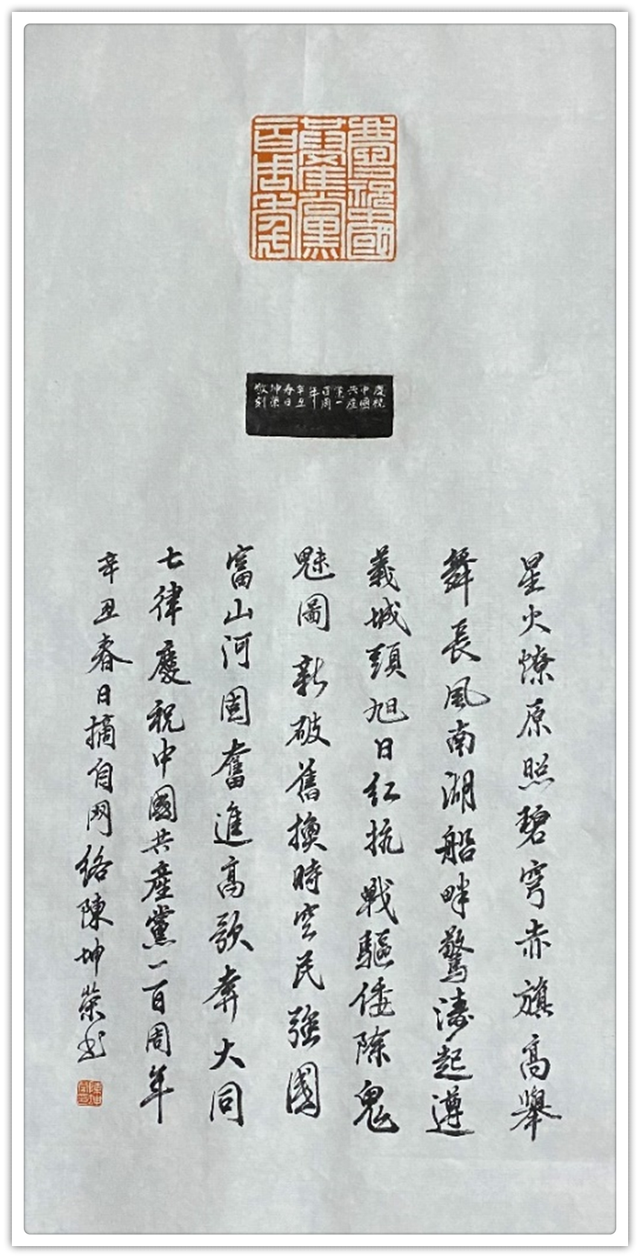 慶祝中國
共產黨
百周年
慶祝
中國
共產
黨一
百周
年
辛丑
春日
坤榮
敬刻
星火燎原照碧穹赤旗高舉
舞長風南湖船畔驚濤起遵
義城頭旭日红抗戰驅倭除鬼
魅圖新破舊換時空民強國
富山河固奮進高歌奔大同
七律慶祝中國共產黨一百周年
辛丑春日摘自网络陳坤榮书